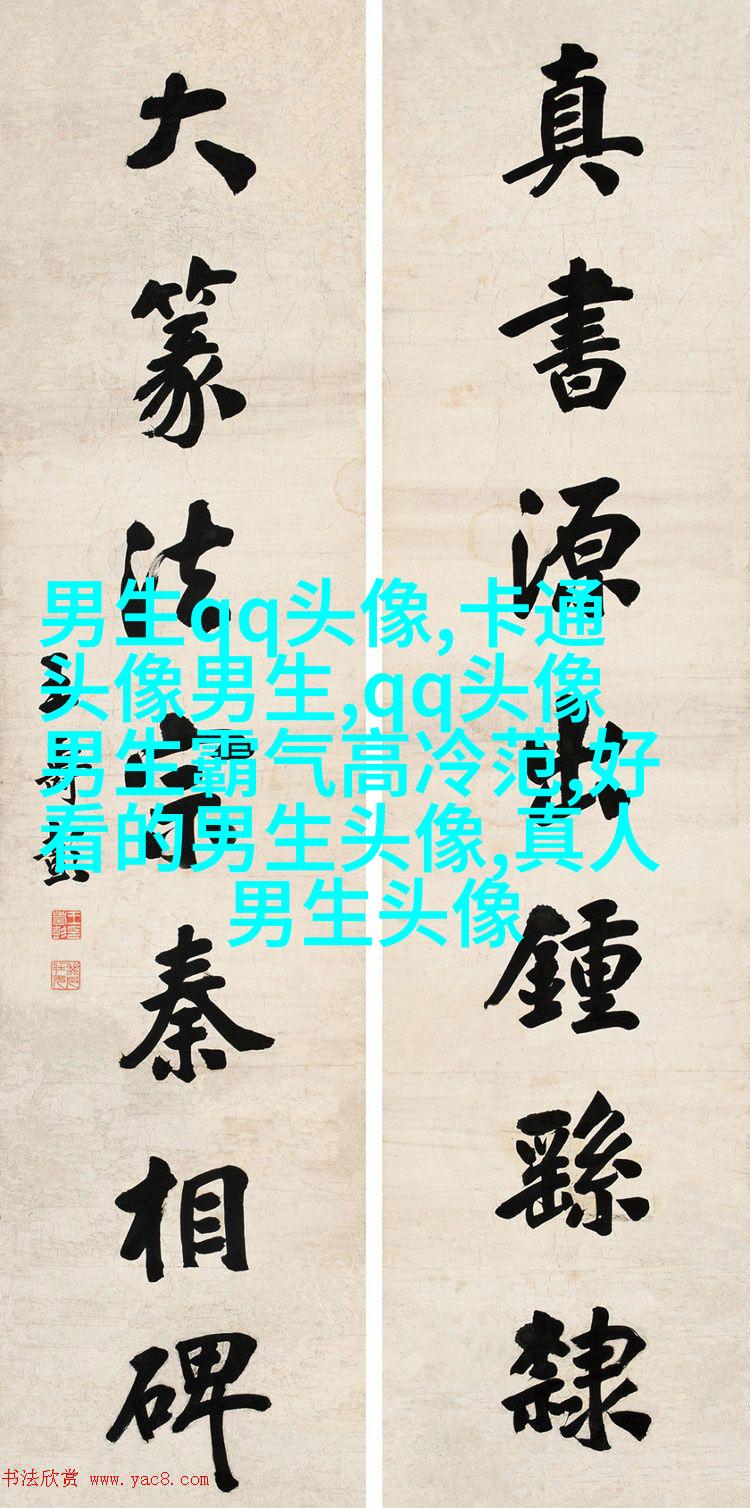 真書源出鍾繇隸
大篆法宗秦相碑
男生qq头像,卡通
头像男生,qq头像
男生霸气高冷范,好
看的男生头像,真人
男生头像
书法欣赏 www.yac8.com